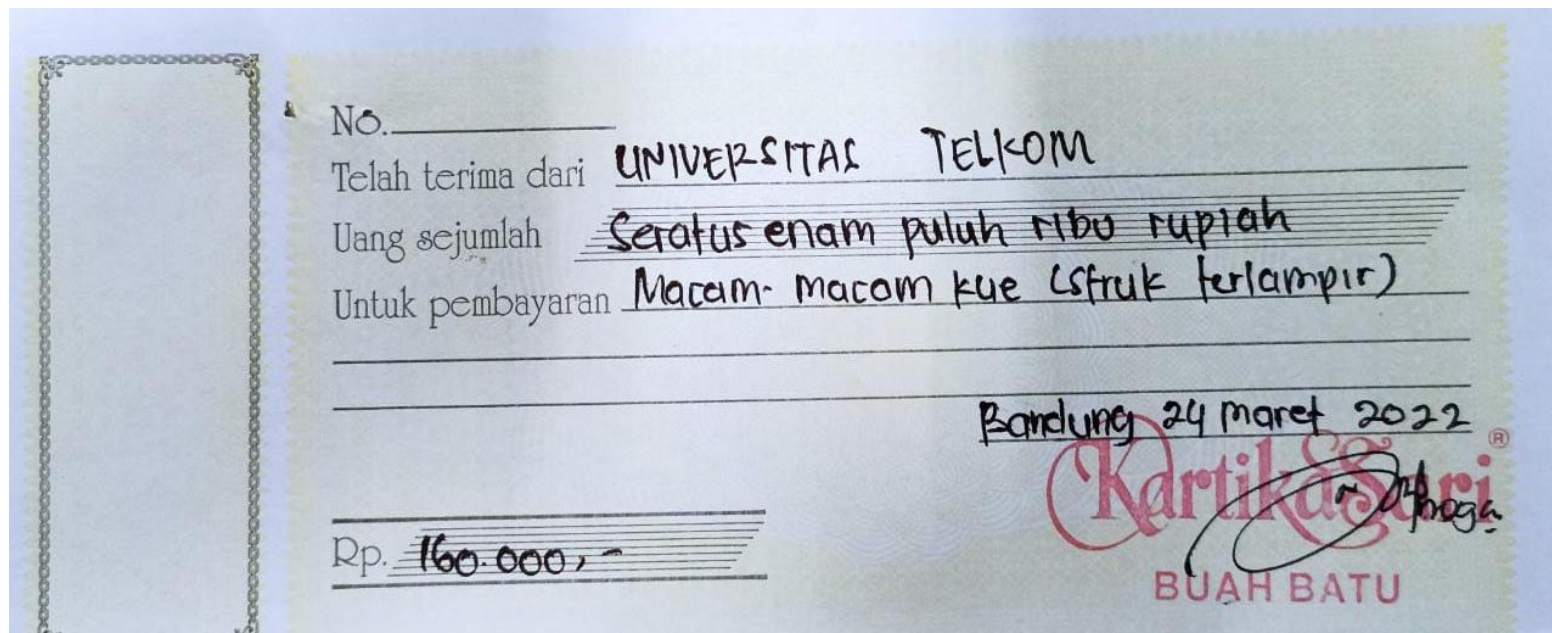 No.
Telah terima dari UNIVERSITAS TELKOM
Uang sejumlah Seratus enam puluh ribu rupiah
Untuk pembayaran Macam-macam kue (struk terlampir)
Bandung 24 maret 2022
KartikaSari ®
Rp. 160.000,-
BUAH BATU